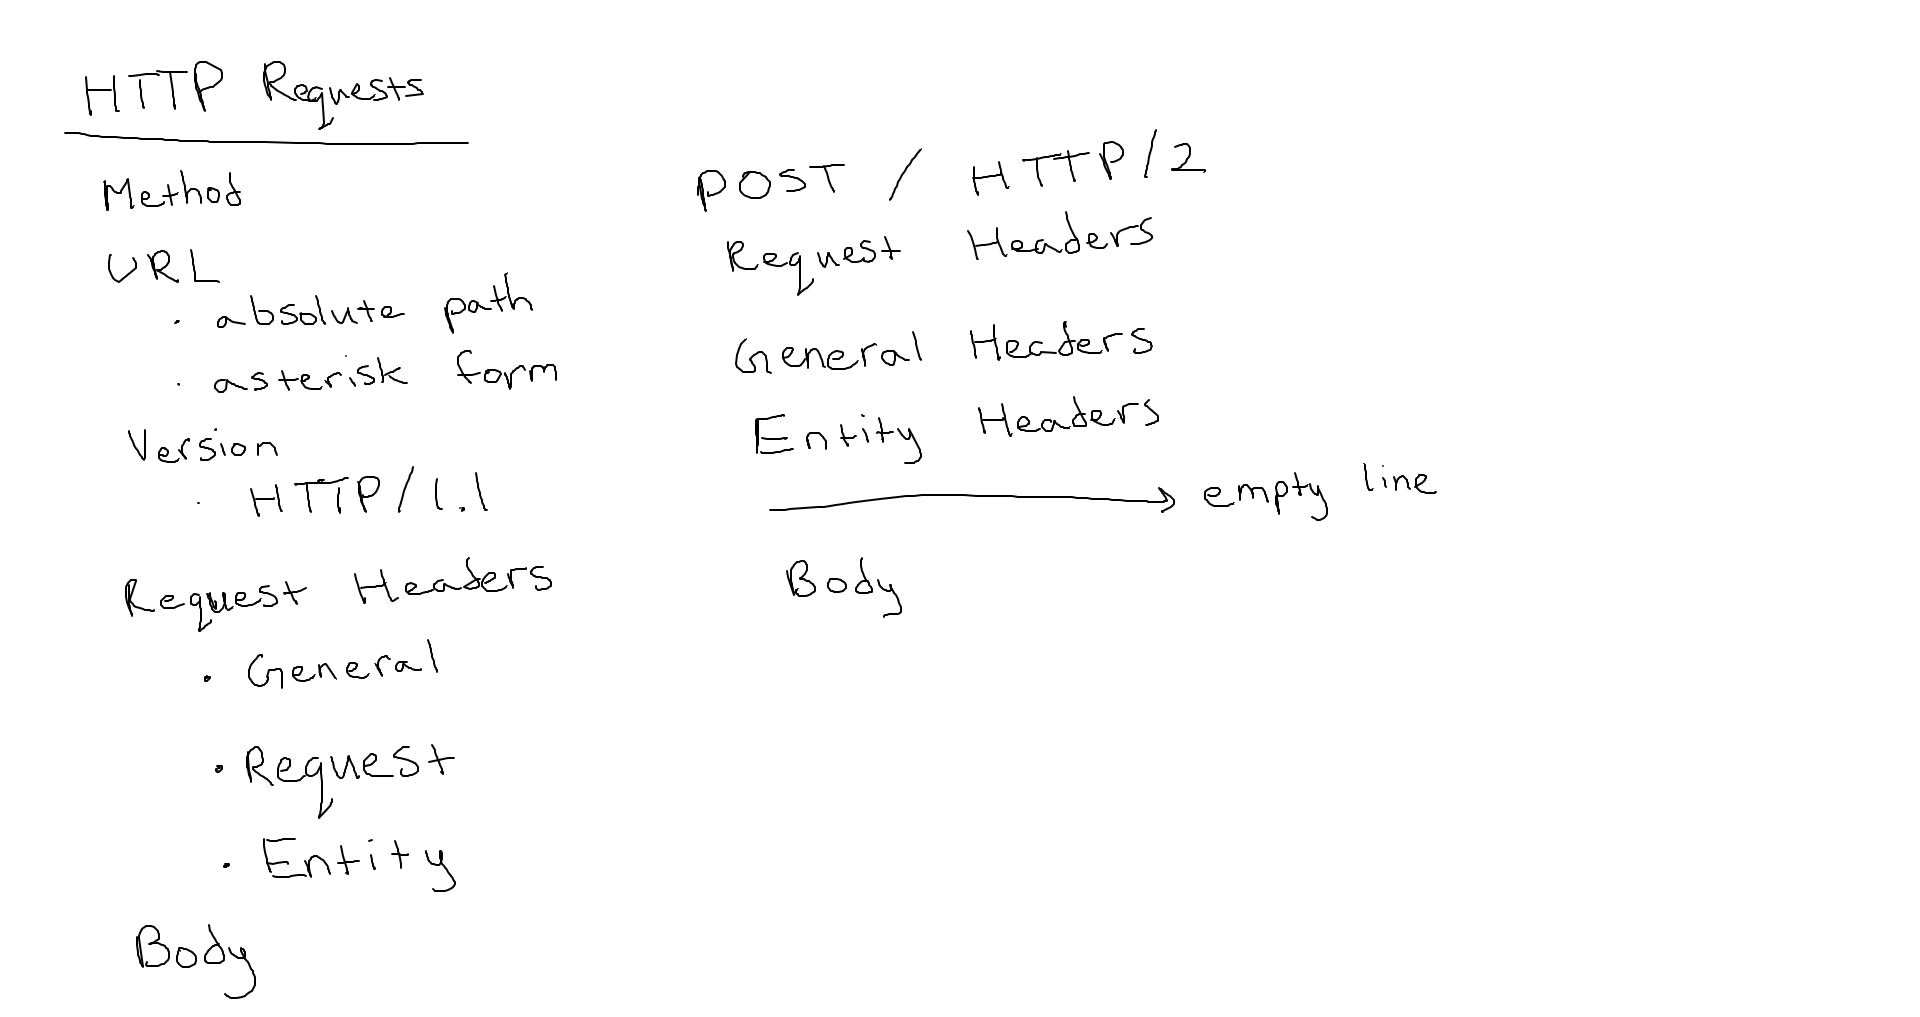 HTTP Requests
Method
URL
· absolute path
· asterisk form
Version
· HTTP/1.1
Request Headers
· General
· Request
· Entity
Body
POST / HTTP/2
Request Headers
General Headers
Entity Headers
→ empty line
Body